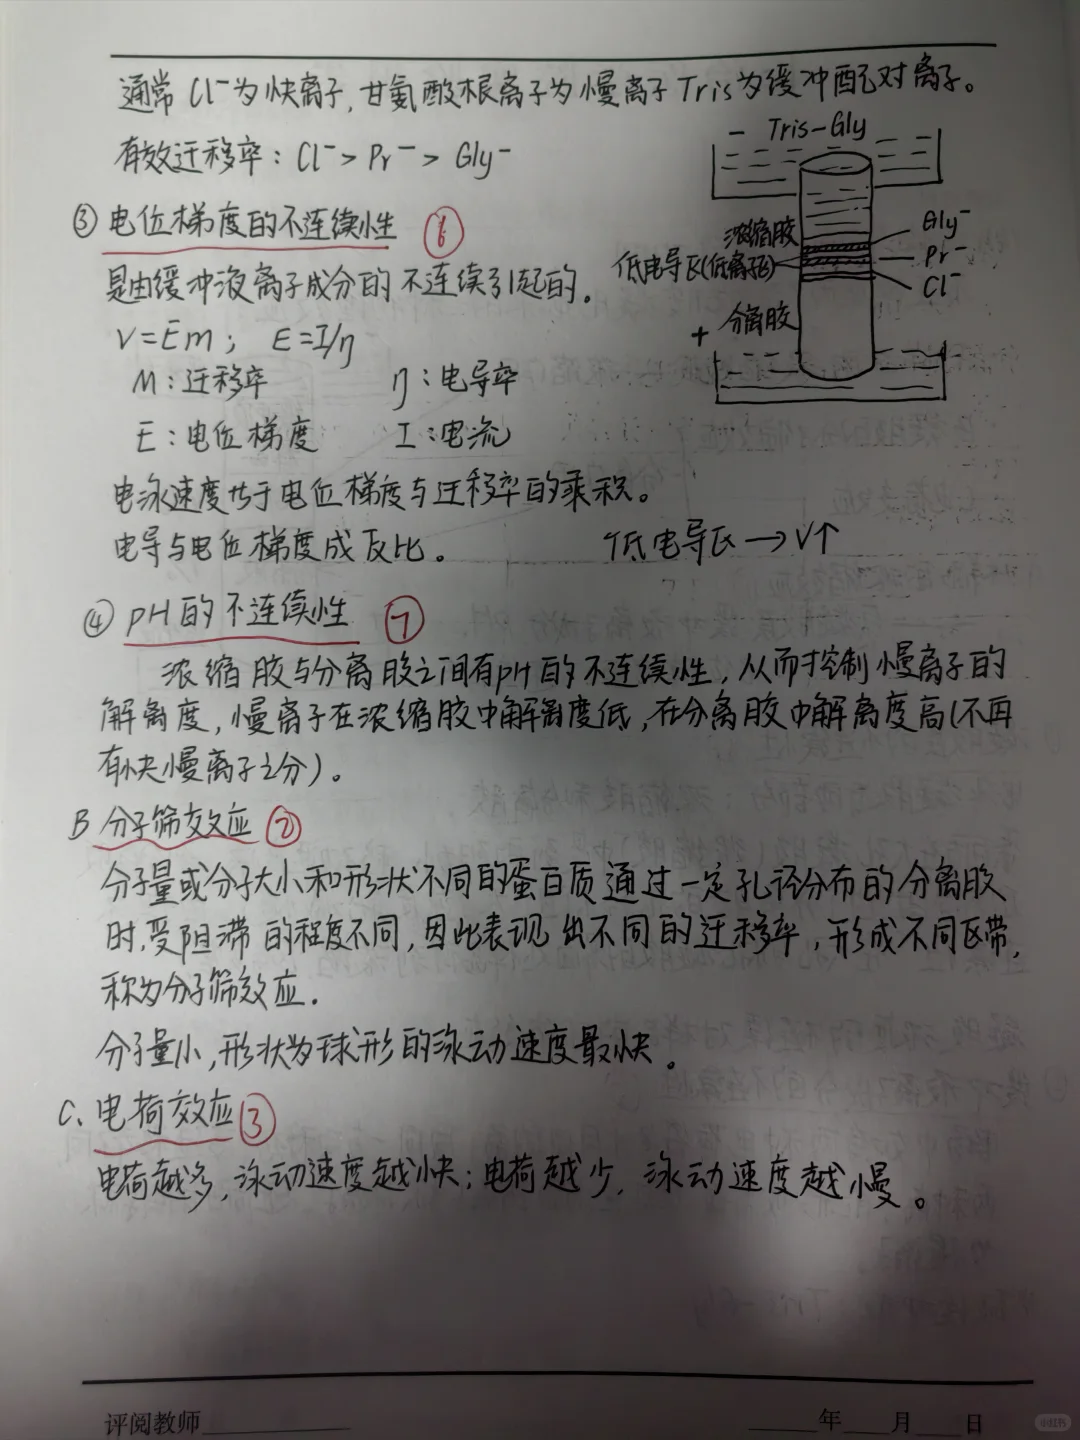 通常 Cl⁻为快离子,甘氨酸根离子为慢离子 Tris为缓冲配对离子。
有效迁移率: Cl⁻ > Pr⁻ > Gly⁻
- Tris-Gly
浓缩胶
低电导区(低离子区)
分离胶
+
Gly⁻
Pr⁻
Cl⁻
③ 电位梯度的不连续性 ⑥
是由缓冲液离子成分的不连续引起的.
V=Em; E=I/η
M:迁移率 η:电导率
E:电位梯度 I:电流
电泳速度等于电位梯度与迁移率的乘积。
电导与电位梯度成反比。 低电导区→V↑
④ pH的不连续性 ⑦
浓缩胶与分离胶之间有pH的不连续性,从而控制慢离子的
解离度,慢离子在浓缩胶中解离度低,在分离胶中解离度高(不再
有快慢离子之分)。
B 分子筛效应 ②
分子量或分子大小和形状不同的蛋白质通过一定孔径分布的分离胶
时,受阻滞的程度不同,因此表现出不同的迁移率,形成不同区带,
称为分子筛效应.
分子量小,形状为球形的泳动速度最快。
C. 电荷效应 ③
电荷越多,泳动速度越快;电荷越少,泳动速度越慢。
评阅教师 年 月 日
小红书